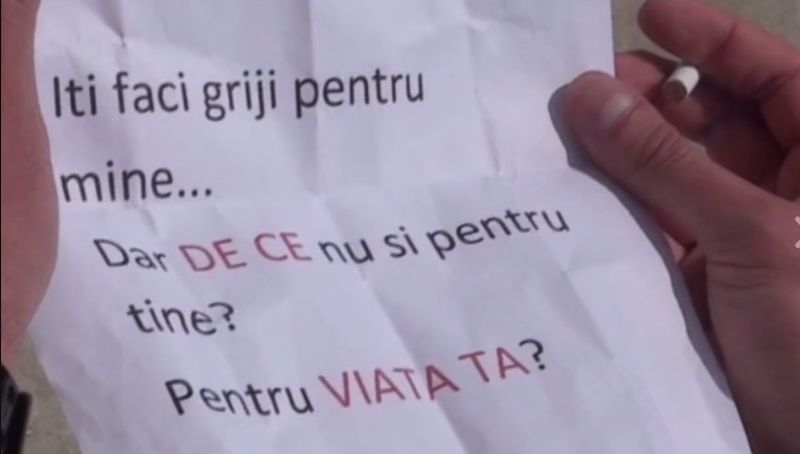 Iti faci griji pentru
mine...
Dar DE CE nu si pentru
tine?
Pentru VIATA TA?